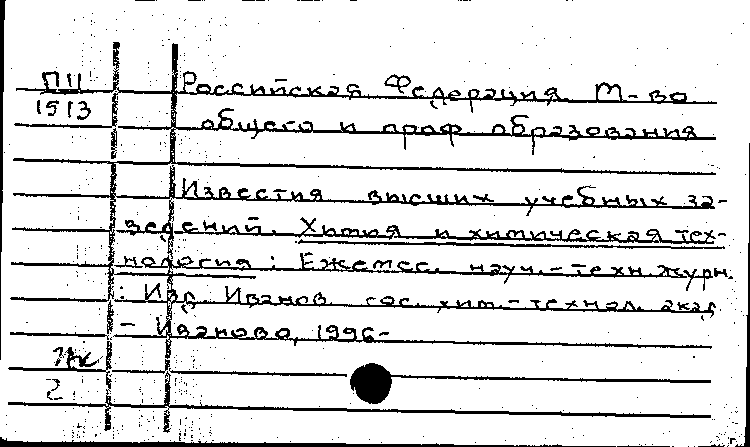 П11
1513
Российская Федерация М-во
общего и проф образования
Известия высших учебных за-
ведений. Химия и химическая тех-
нология: Ежемес. науч.-техн. журн.
: Изд. Иванов. гос. хим.-технол. акад
- Иваново, 1996-
2